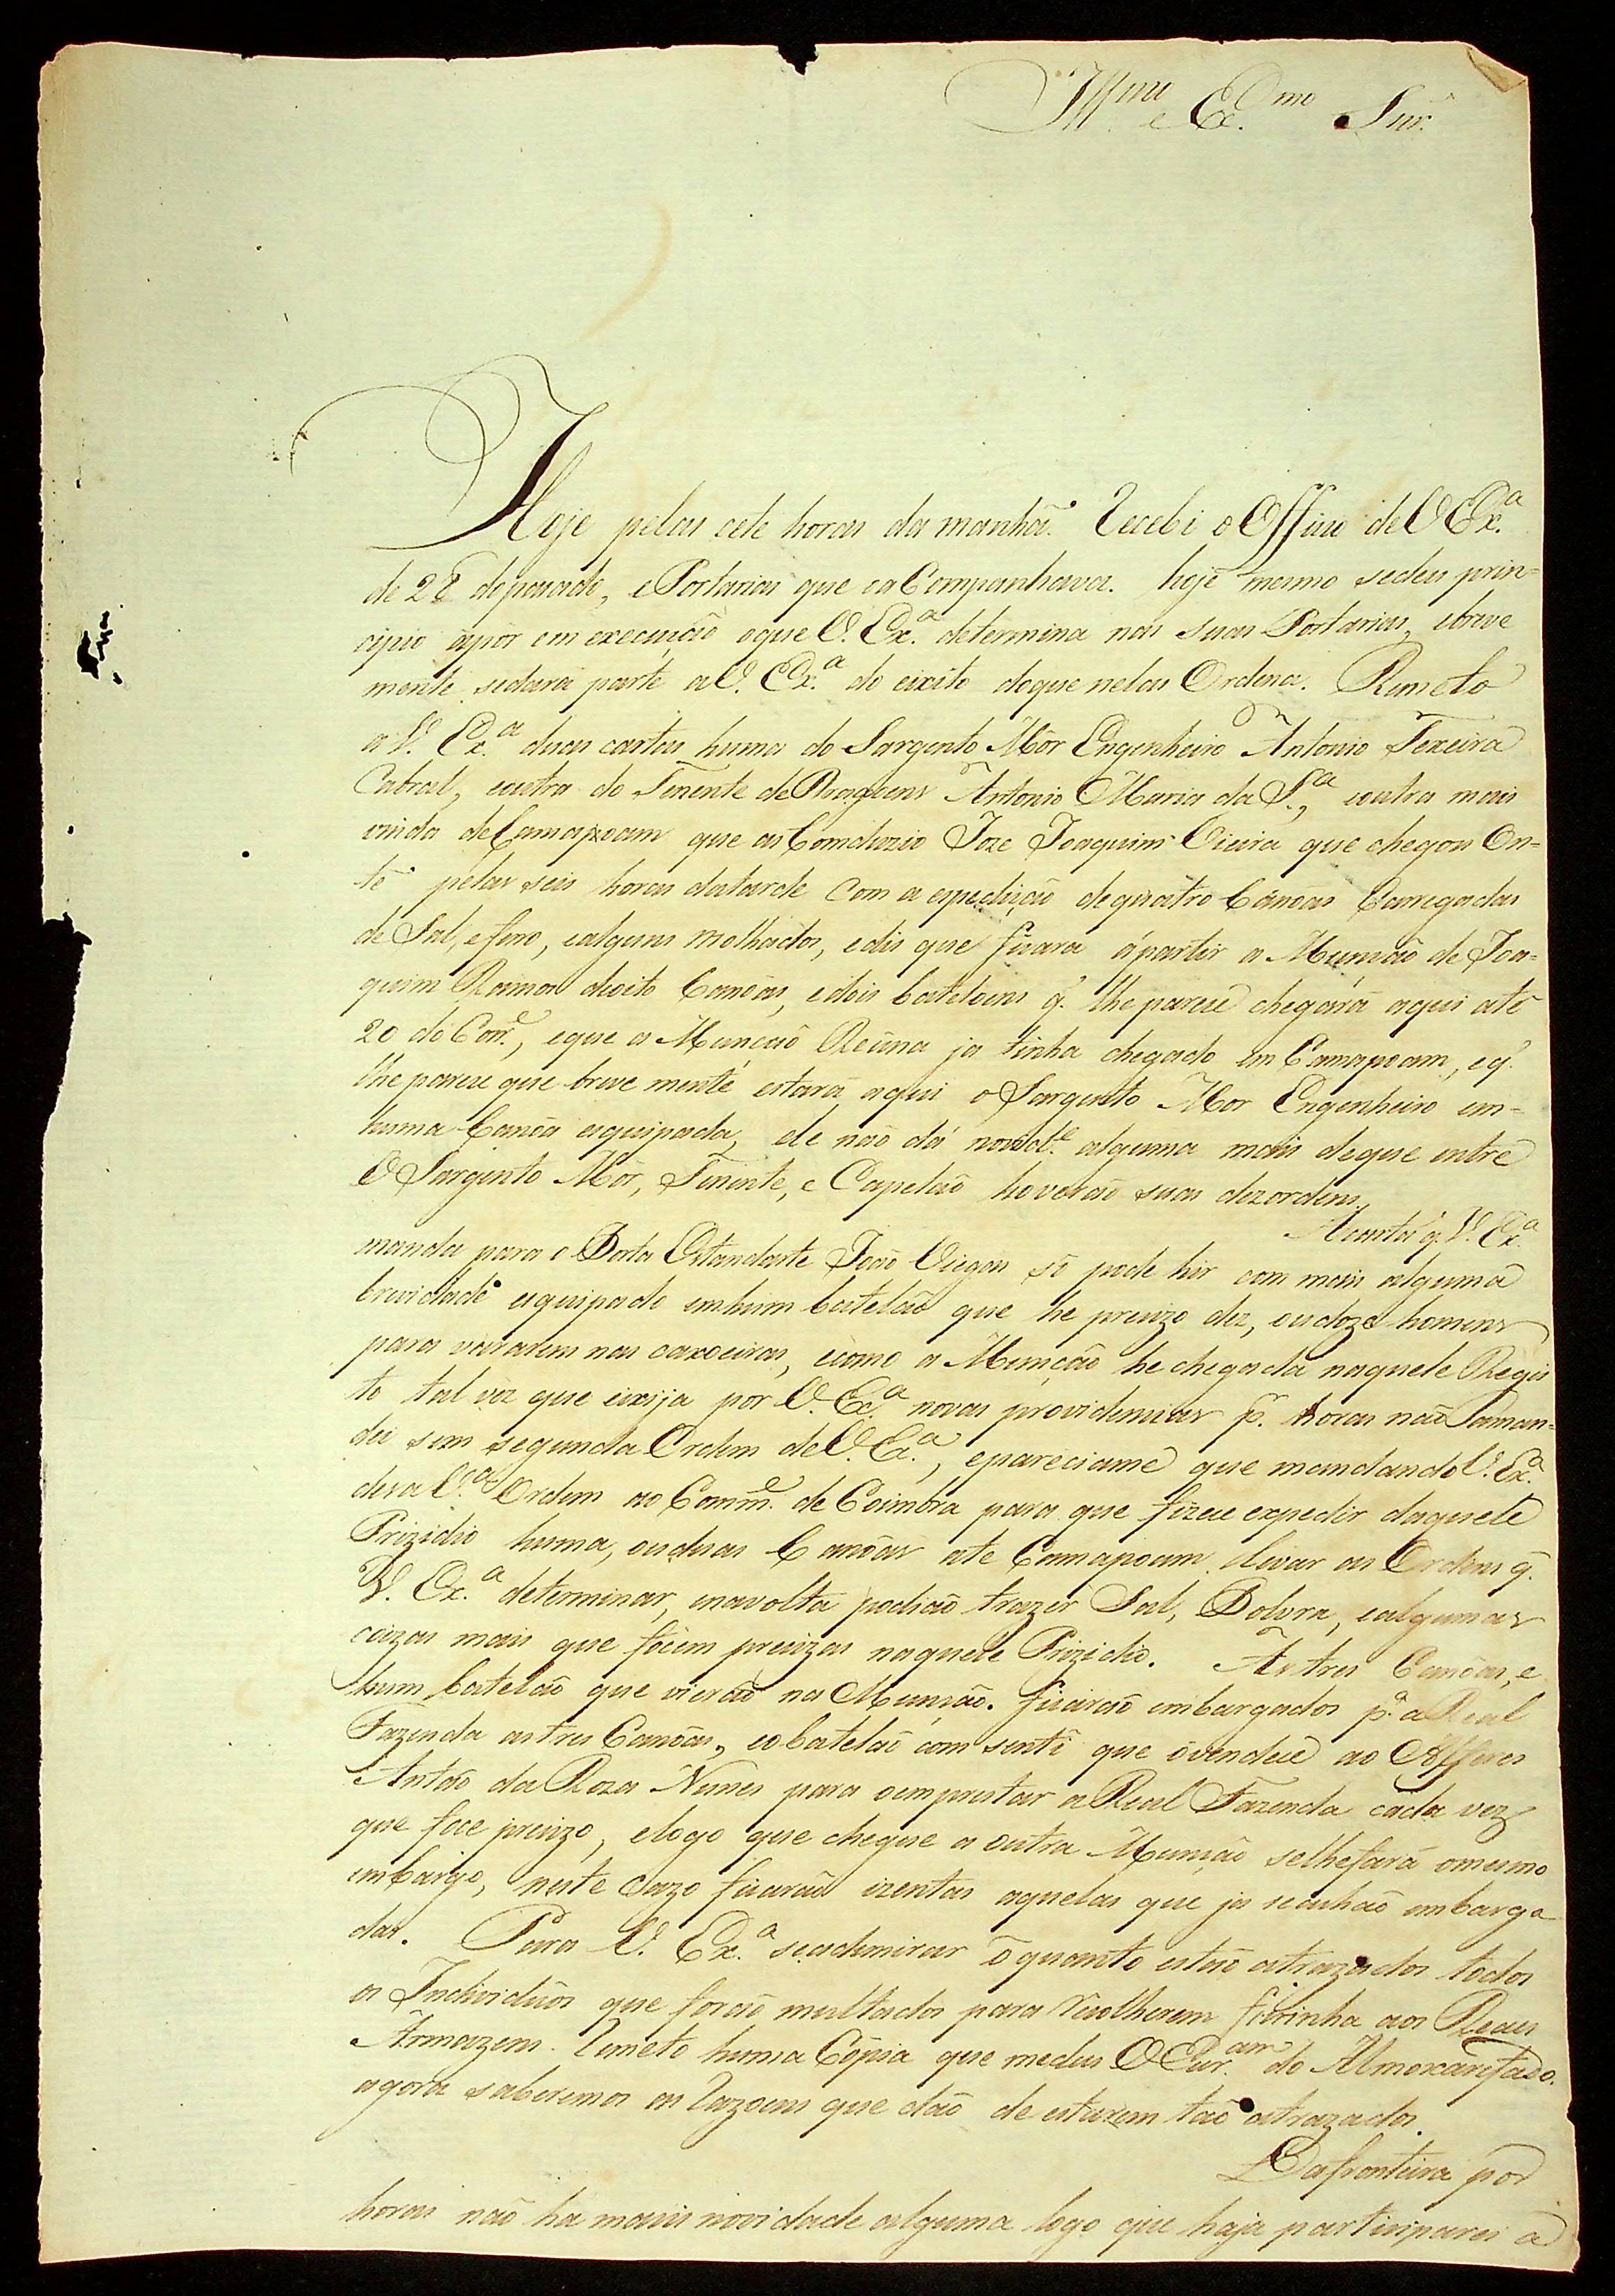 Ill.mo e Ex.mo Snr.
Hoje pelas sete horas da manhã. Recebi o Officio de V Ex.a
de 28 do pasado, e Portarias que o aCompanhava. hoje mesmo sedeu prin=
cipio apôr em execuição oque V. Ex.a determina nas suas Portarias, ebreve
mente sedará parte aV. Ex.a do eixito doque nelas Ordena. Remeto
a V. Ex.a duas cartas huma do Sargento Mór Engenheiro Antonio Texeira
Cabral, eoutra do Tenente de Dragoens Antonio Maria da S.a, eoutra mais
vinda deCamapoam que as Comduzio Joze Joaquim Vieira que chegou On=
te pelas seis horas datarde Com a espedição dequatro Canôas Carregadas
de Sal, eferro, ealguns molhados, edis que ficara ápartir a Munção de Joa=
quim Ramos deoito Canôas, edois bateloens q. lhe parece chegará aqui até
20 do Corr.e, eque a Munção Reúna ja tinha chegado em Camapoam, eq.
lhe parece que breve mente estará aqui o Sargento Mor Engenheiro em=
huma Canôa esquipada, ele não dá novid.e alguma mais deque entre
O Sargento Mor, Tenente, e Capelão hoverão suas dezordens.
Acarta q. V. Ex.a
manda para o Porta Estandarte João Viegas só pode hir com mais alguma
brevidade esquipado emhum batelão que he precizo dez, oudoze homens
para vararem nas caxoeiras, ecomo a Munção he chegada naquele Regis
to tal vez que eixija por V. Ex.a novas providencias p.r horas não Lamam=
dei sem segunda Ordem deV. Ex.a, epareciame que mandando V. Ex.a
Ordem ao Comm.e de Coimbra para que fizece expedir daquele
Prizidio huma, ouduas Canôas ate Camapoam levar as Ordens q.
V. Ex.a determinar, enavolta podião trazer Sal, Polvra, ealgumas
coizas mais que fôcem precizas naquele Prizidio. As tres Canôas, e
hum batelão que vierão na Munção. ficarão embargados p.a a Real
Fazenda as tres Canôas, eobatelão com senti que ovendece ao Alferes
Antão da Roza Nunes para oemprestar a Real Fazenda cada vez
que foce precizo, elogo que chegue a outra Munção selhefará omesmo
embargo, neste Cazo ficarão izentas aquelas que ja seachão embarga
das. Para V. Ex.a seadmirar o quanto estão atrazados todos
os Individuos que forão multados para recolherem farinha aos Reaes
Armazens. Remeto huma Cópia que medeu O Escr.am do Almoxarifado.
agora saberemos as razoens que dão de estarem tão atrazados.
Dafronteira por
horas não ha mais novidade alguma logo que haja participarei a